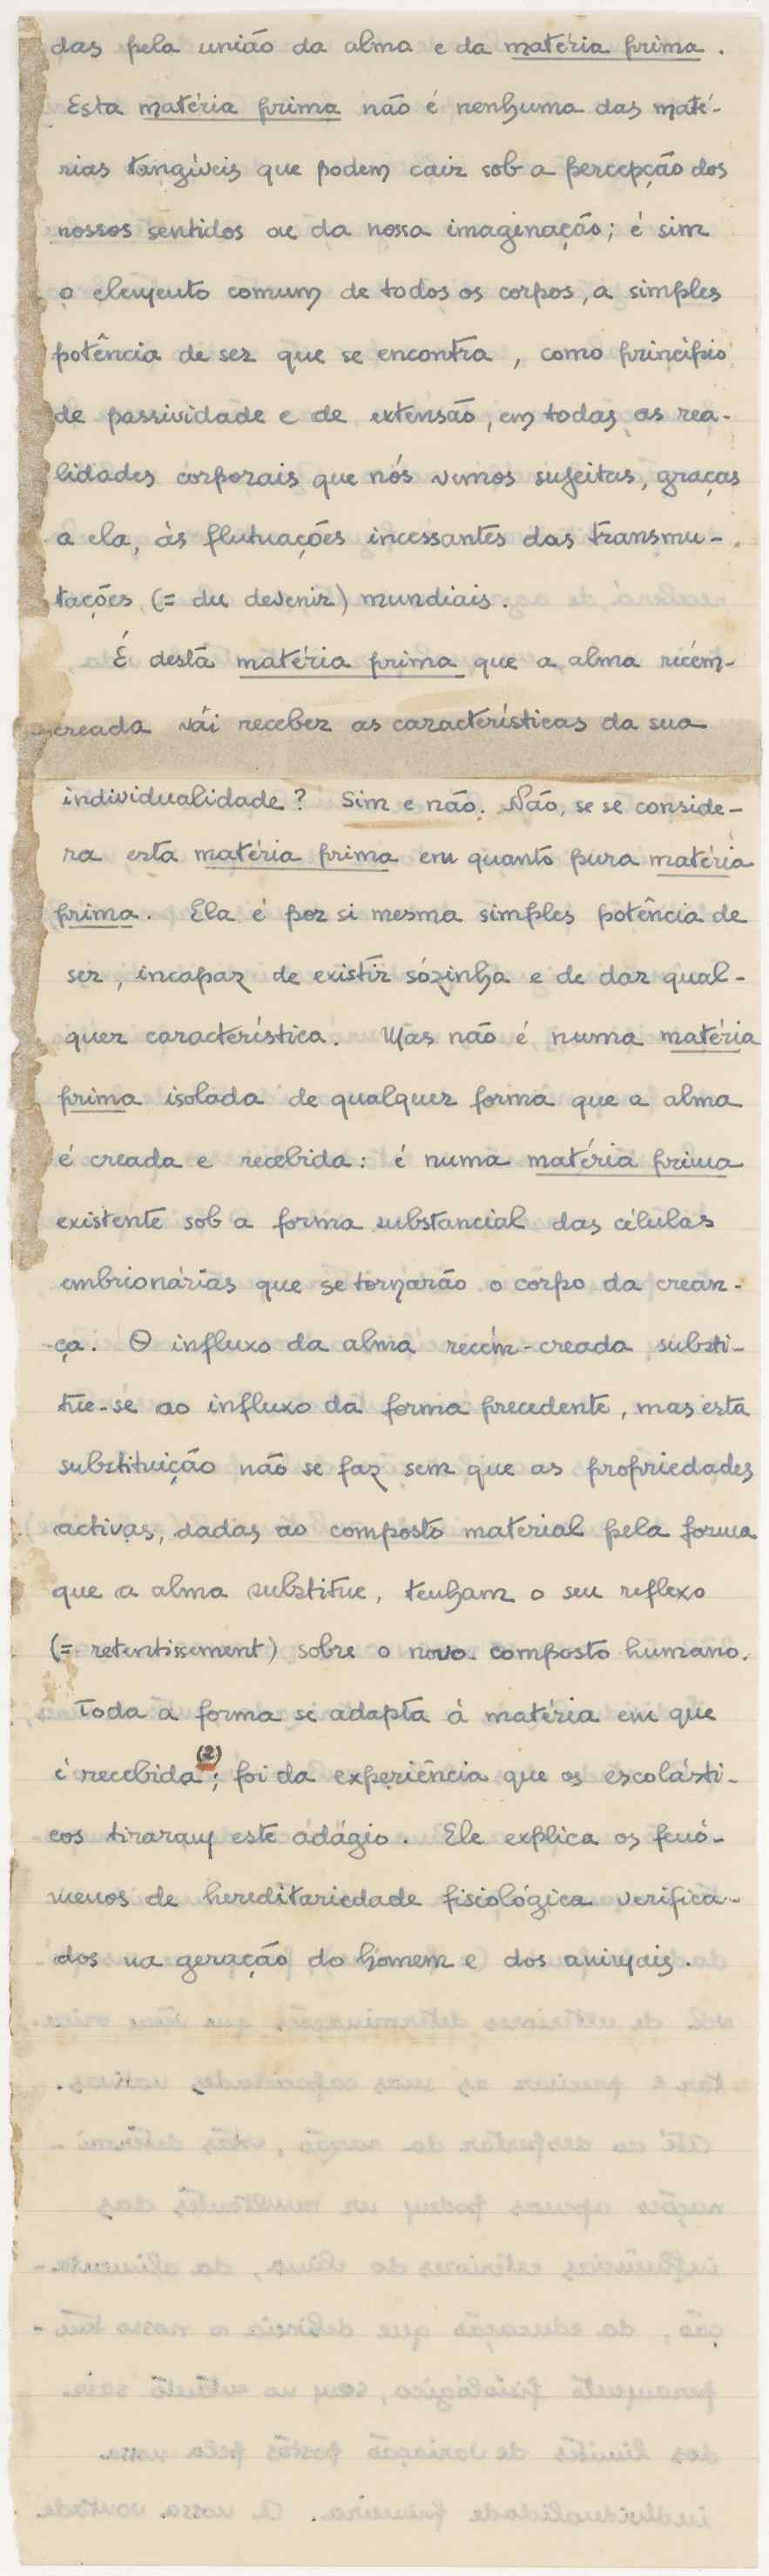 das pela união da alma e da matéria prima.
Esta matéria prima não é nenhuma das maté-
rias tangíveis que podem cair sob a percepção dos
nossos sentidos ou da nossa imaginação; é sim
o elemento comum de todos os corpos, a simples
potência de ser que se encontra, como princípio
de passividade e de extensão, em todas as rea-
lidades corporais que nós vemos sujeitas, graças
a ela, às flutuações incessantes das transmu-
tações (= du devenir) mundiais.
É desta matéria prima que a alma recém-
creada vái receber as características da sua
individualidade? Sim e não. Não, se se conside-
ra esta matéria prima em quanto pura matéria
prima. Ela é por si mesma simples potência de
ser, incapaz de existir sózinha e de dar qual-
quer característica. Mas não é numa matéria
prima isolada de qualquer forma que a alma
é creada e recebida: é numa matéria prima
existente sob a forma substancial das células
embrionárias que se tornarão o corpo da crean-
ça. O influxo da alma recém-creada substi-
tue-se ao influxo da forma precedente, mas esta
substituição não se faz sem que as propriedades
activas, dadas ao composto material pela forma
que a alma substitue, tenham o seu reflexo
(= retentissement) sobre o novo composto humano.
Toda a forma se adapta à matéria em que
é recebida (2); foi da experiência que os escolásti-
cos tiraram este adágio. Ele explica os fenó-
menos de hereditariedade fisiológica verifica-
dos na geração do homem e dos animais.